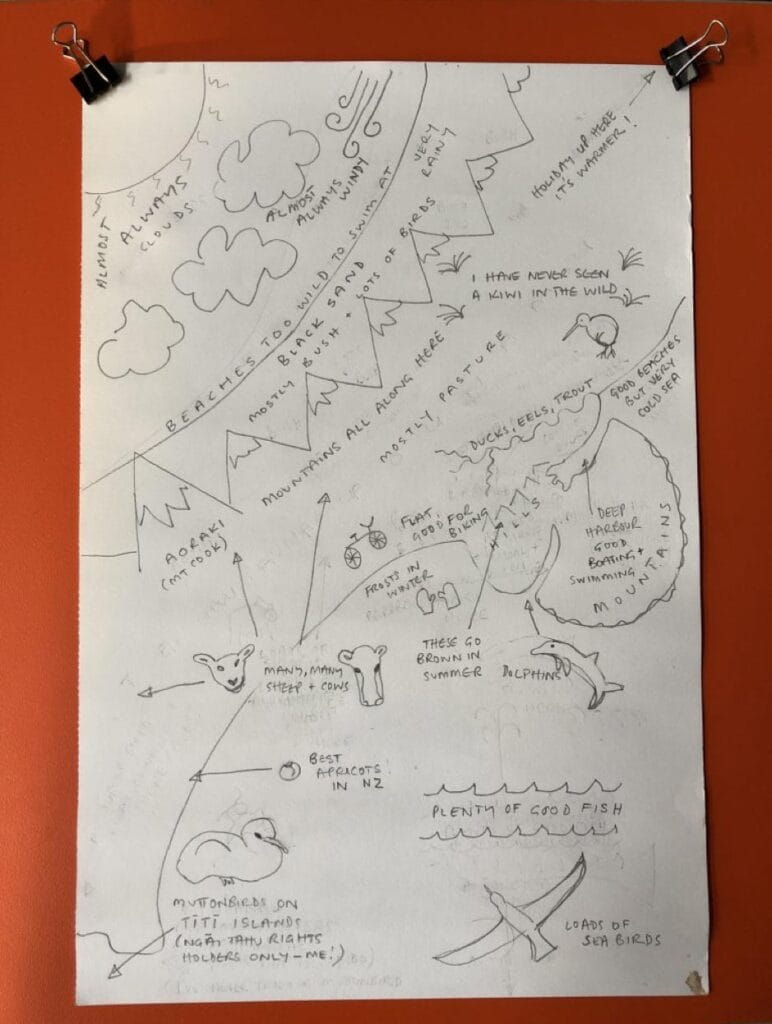 ALMOST
ALWAYS
CLOUDS
ALMOST
ALWAYS
WINDY
VERY
RAINY
HOLIDAY UP HERE
IT'S WARMER!
BEACHES TOO WILD TO SWIM AT
BLACK SAND
MOSTLY BUSH + LOTS OF BIRDS
I HAVE NEVER SEEN
A KIWI IN THE WILD
MOUNTAINS ALL ALONG HERE
MOSTLY PASTURE
GOOD BEACHES
BUT VERY
COLD SEA
DUCKS, EELS, TROUT
AORAKI
(MT COOK)
FLAT,
GOOD FOR
BIKING
HILLS
DEEP
HARBOUR
GOOD
BOATING +
SWIMMING
MOUNTAINS
FROSTS IN
WINTER
MANY, MANY
SHEEP + COWS
THESE GO
BROWN IN
SUMMER
DOLPHINS
BEST
APRICOTS
IN NZ
PLENTY OF GOOD FISH
MUTTONBIRDS ON
TĪTĪ ISLANDS
(NGĀI TAHU RIGHTS
HOLDERS ONLY - ME!)
LOADS OF
SEA BIRDS